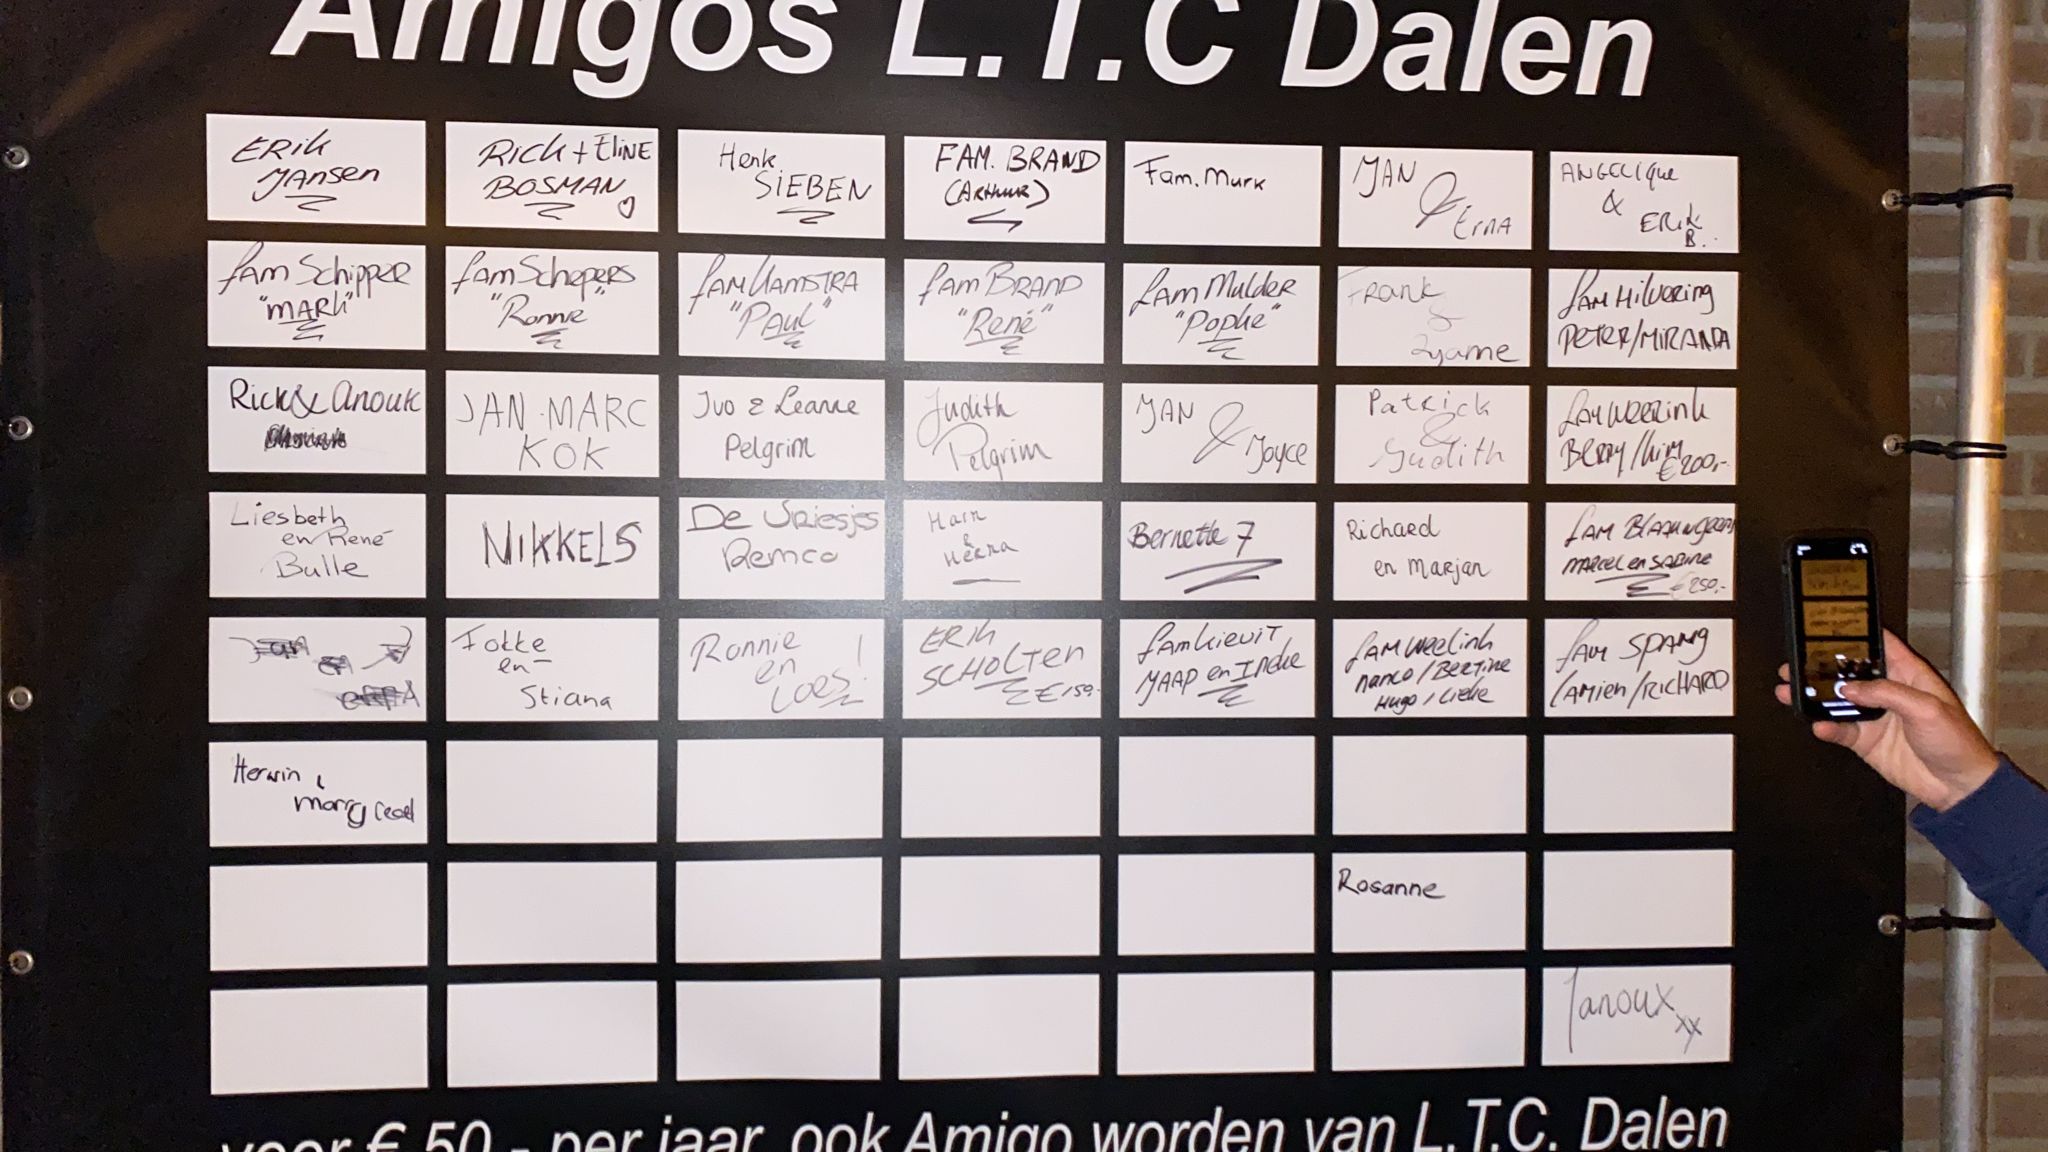 Amigos L.T.C Dalen
ERik
JANSEN
RICK + ELINE
BOSMAN
Henk
SIEBEN
FAM. BRAND
(ARTHUR)
Fam. Murk
JAN
&
Erna
ANGELIQUE
&
ERIK
B..
fam Schipper
"MARk"
fam Schepers
"Ronnie"
fam HAMSTRA
"PAUL"
fam BRAND
"René"
fam Mulder
"Popke"
Frank
&
fam Hilvering
PETER/MIRANDA
Rick & Anouk
JAN-MARC
KOK
Ivo & Leanne
Pelgrim
Judith
Pelgrim
JAN
&
Joyce
Patrick
&
Judith
fam WEERink
BERRY/kim
€200,-
Liesbeth
en René
Bulle
NIKKELS
De Vriesjes
Remco
Harn
&
Bernette 7
Richard
en Marjan
fam
MARCEL en SABINE
€250,-
Fokke
en
Stiana
Ronnie
en
Loes!
ERIK
SCHOLTEN
€150,-
fam kievit
JAAP en Ineke
fam WEELink
nanco/BERTINE
Hugo/Lieke
fam SPANG
/RICHARD
Herwin
Rosanne
Janoux
xx
voor € 50,- per jaar, ook Amigo worden van L.T.C. Dalen